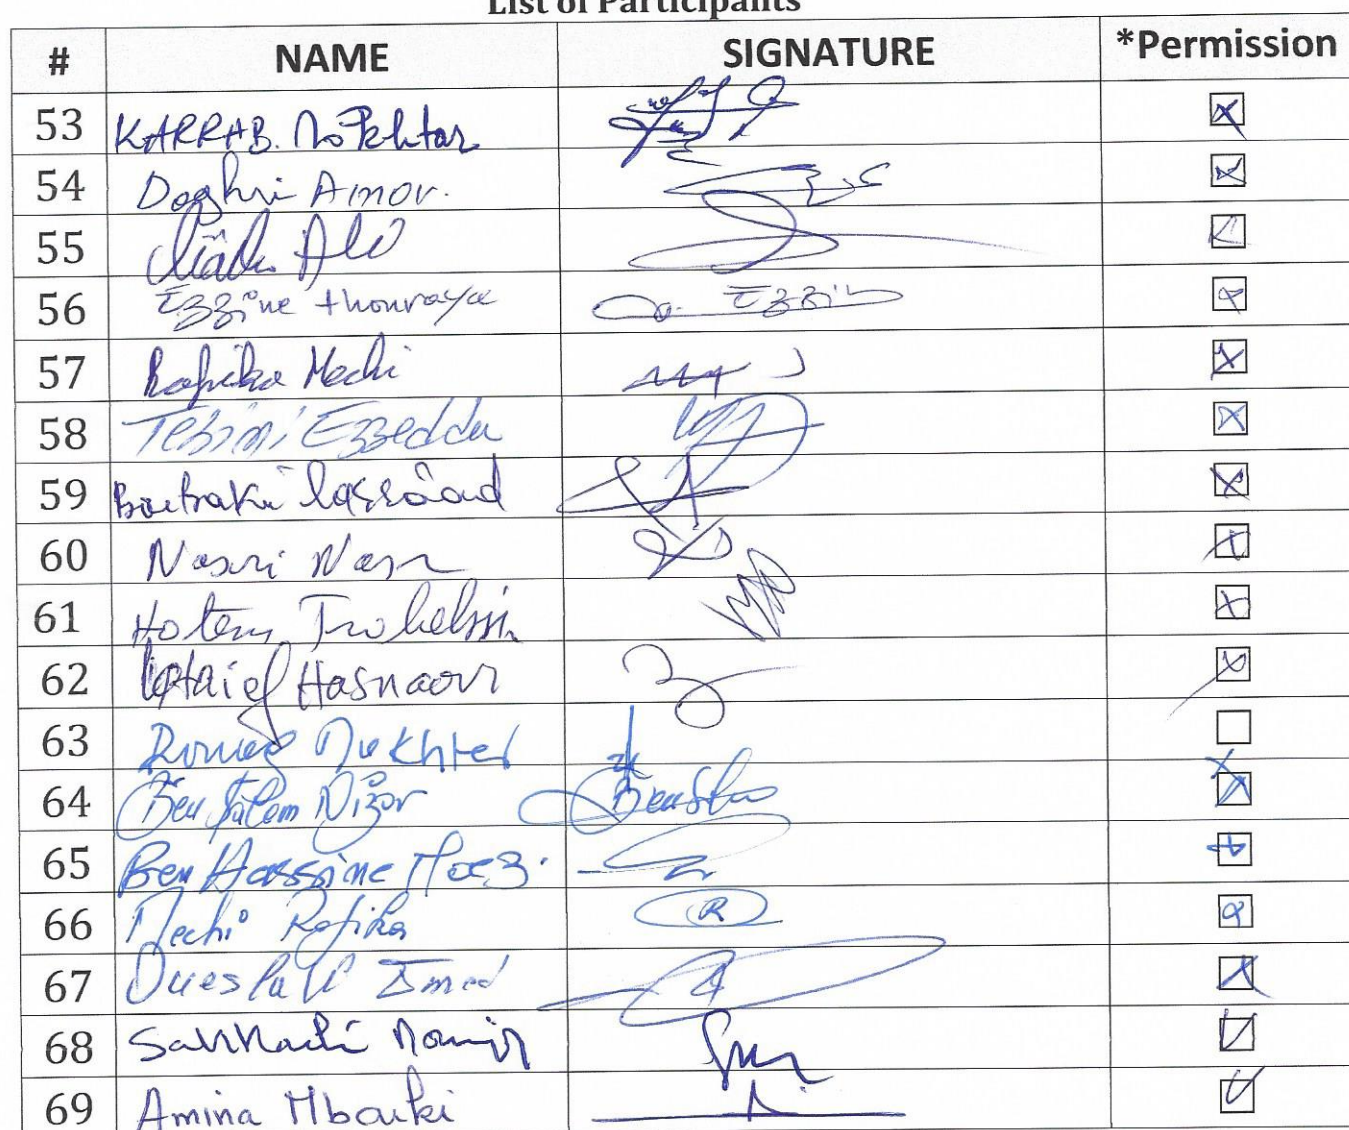 List of Participants
# NAME SIGNATURE *Permission
53 KARRAB. Mokhtar
54 Doghri Amor.
55 Ali
56 Ezzine thouraya Ezzin
57 Rafika Mechi
58 Tebini Ezzeddu
59 Boubakri lassâad
60 Nasri Nasr
61 Hatem Trabelssi
62 Hasnaoui
63 Mokhter
64 Ben Salem Nizar
65 Ben Hassine Moez.
66 Mechi Rafika R
67 Oueslati Imed
68
69 Amina Mbarki